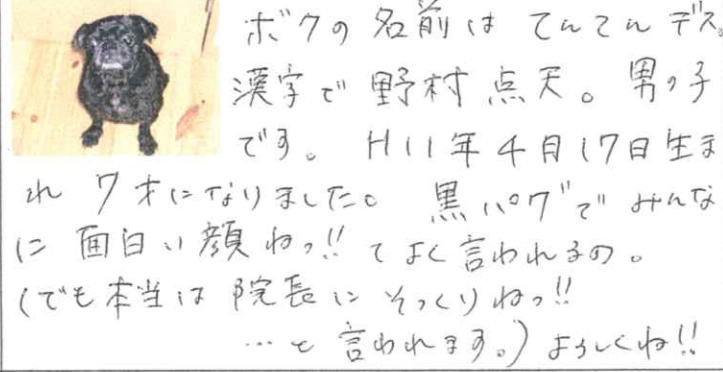 ボクの名前は てんてん デス。
漢字で 野村 点天。男の子
です。 H11年4月17日生ま
れ 7才になりました。 黒パグで みんな
に 面白い顔ねっ!! て よく言われるの。
(でも本当は 院長に そっくりねっ!!
…と 言われます。) よろしくね!!